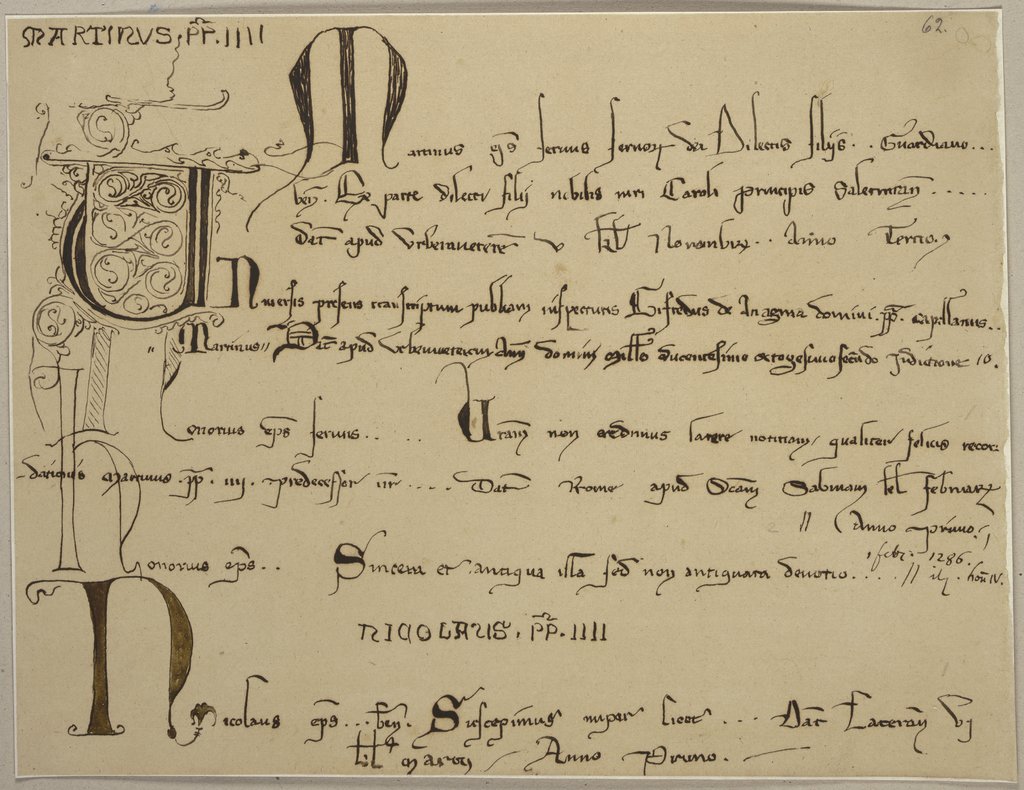 MARTINUS. PP. IIII
62.
Martinus eps servus servorz dei Dilectis filijs . . Guardiano . . .
ben. Ex parte dilecti filij nobilis viri Caroli principis Salernitan . . . . .
Dat apud Urbemveterē V kl Novembrz . . Anno Tercio.
Universis presens transcriptum publicum inspecturis Gifredus de Anagnia domini . pp . capellanus . .
" Martinus " Dat apud Urbemveterem Ann domini Millo ducentesimo octogesimo secundo Indictione 10.
Honorius eps servus . . . . . Uram non credimus latere notitiam, qualiter felicis recor-
-dationis Martinus . pp . IIII . predecessor nr . . . . Dat Rome apud Scam Sabinam kl februarz
// Anno primo.
1 febr. 1286.
Honorius eps . . Sincera et antiqua illa sed non antiquata devotio . . . . // . hon IV.
NICOLAUS. PP. IIII
Nicolaus eps . . . ben. Suscepimus nuper licet . . . Dat Lateran VI
kl Marcij Anno Primo.